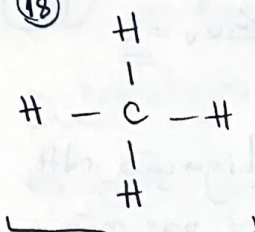 18
H
|
H - C - H
|
H